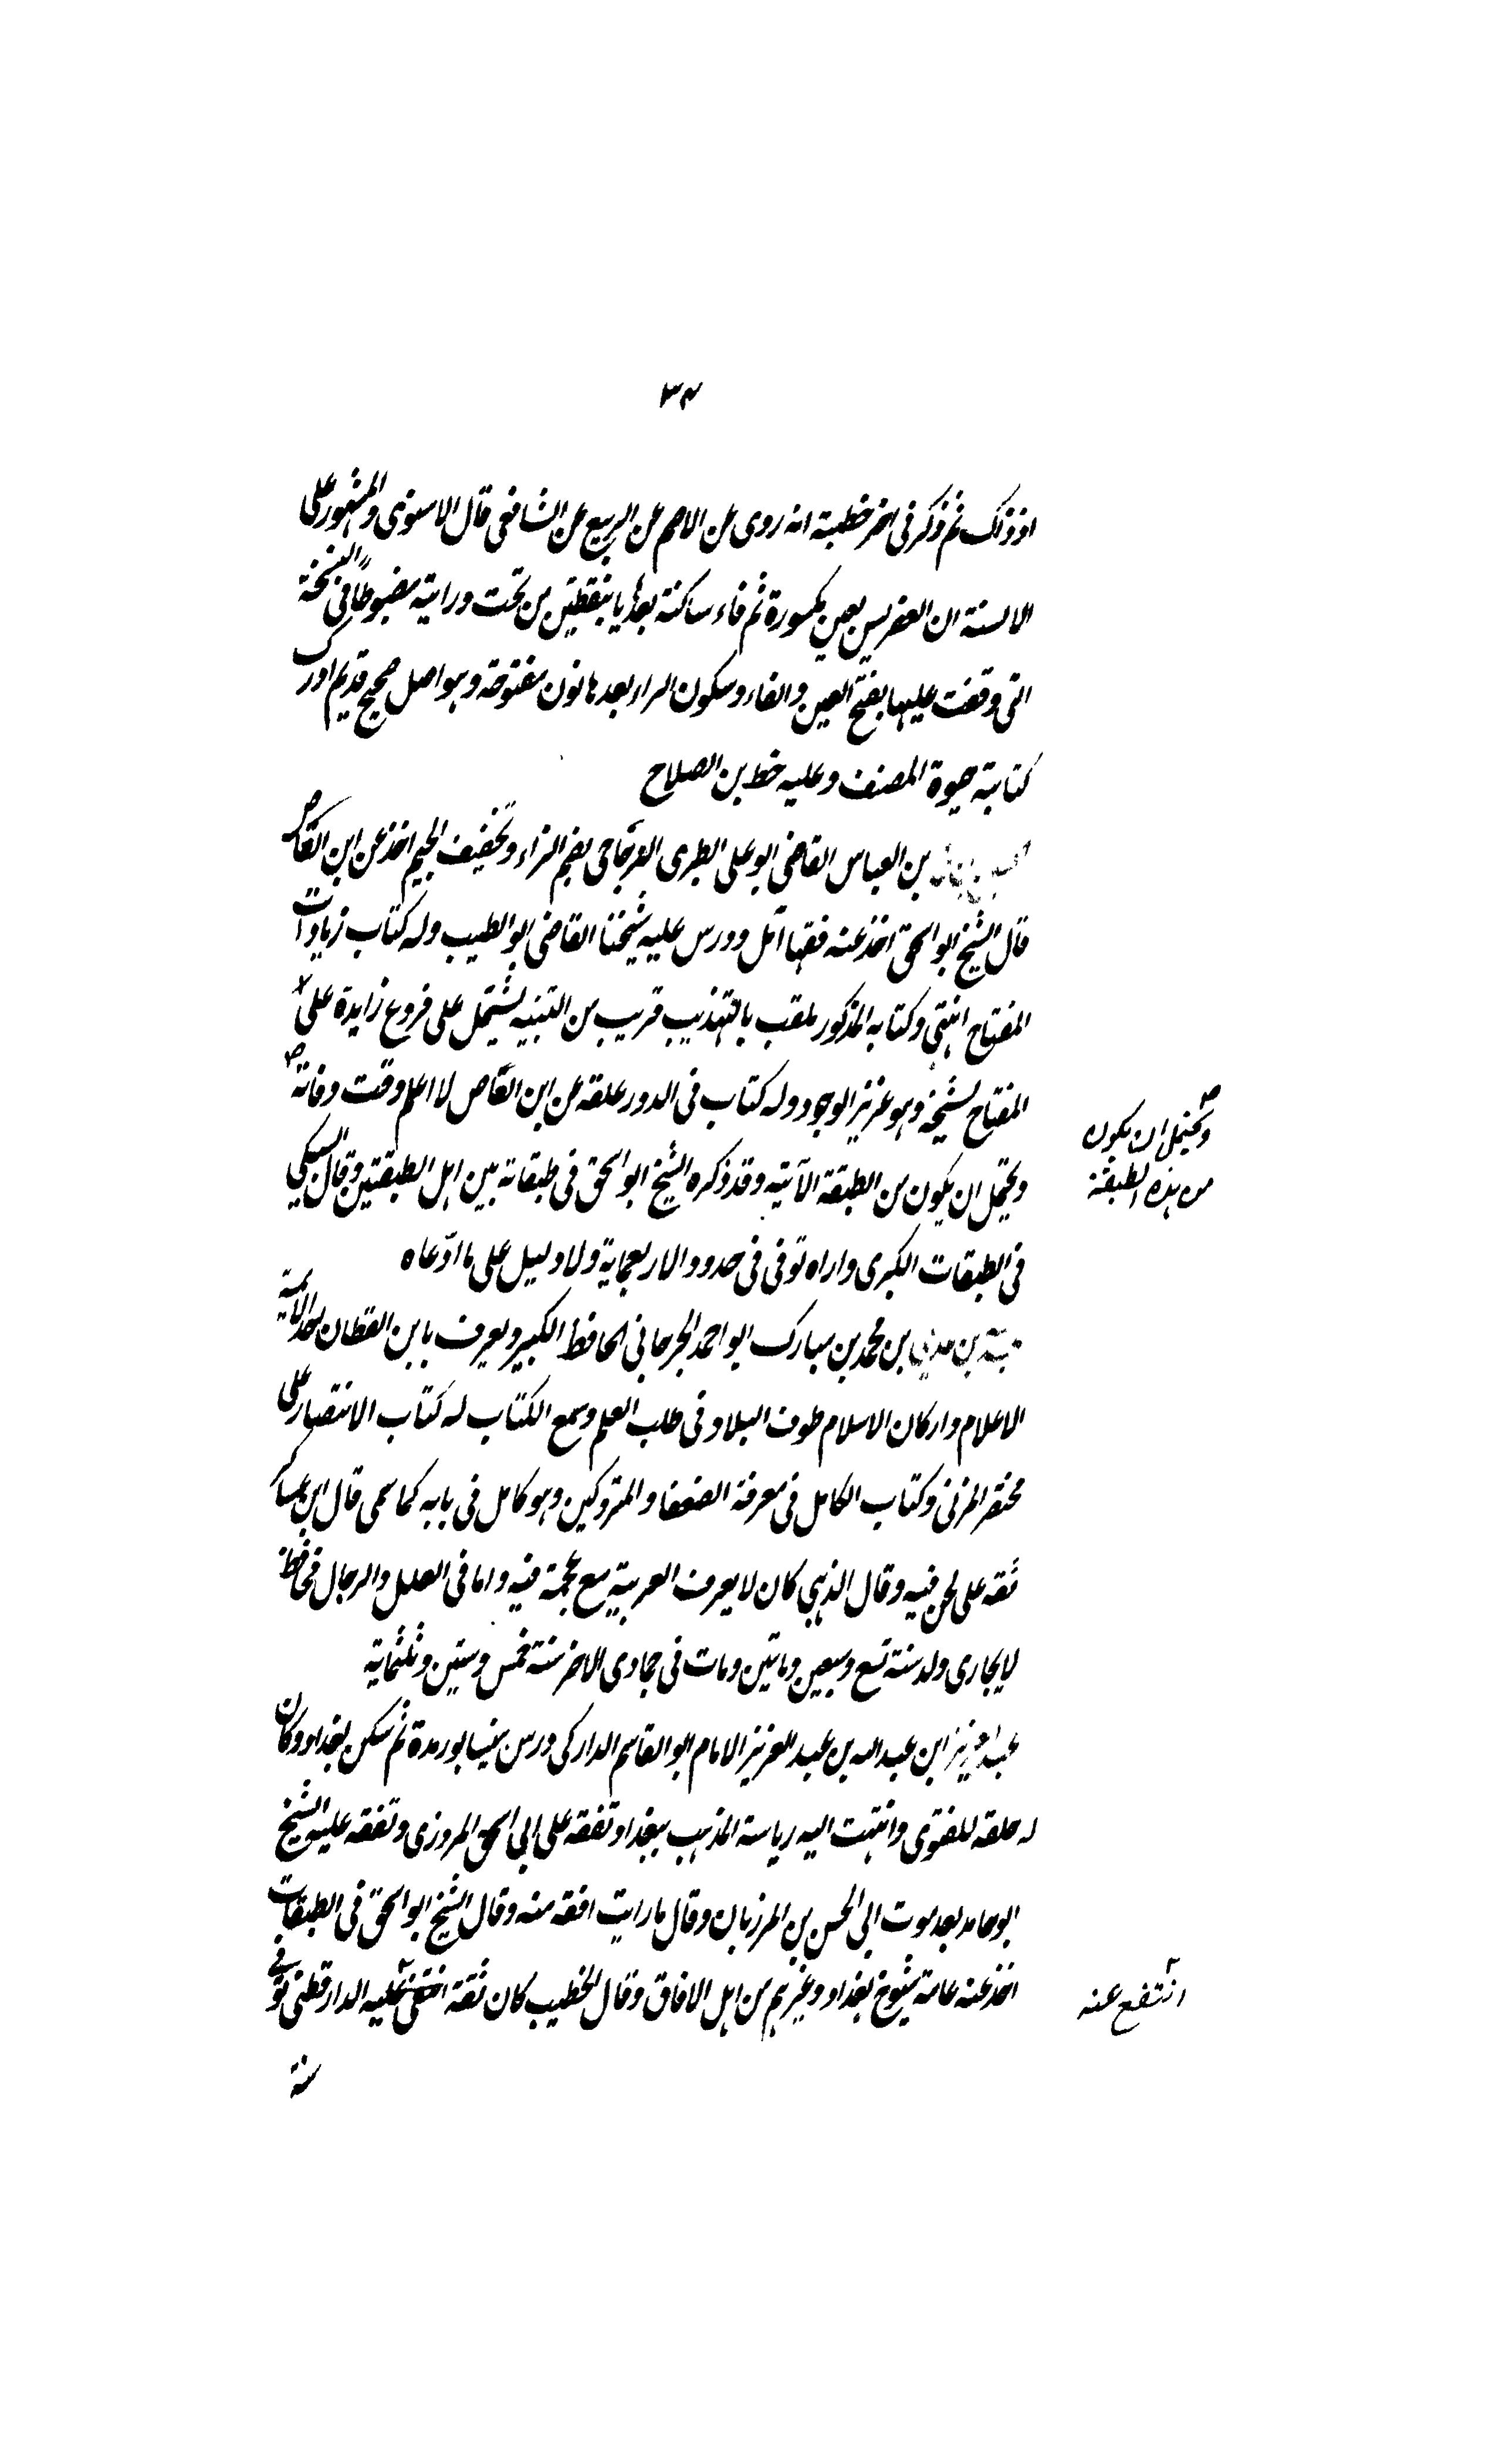 ٣٤
اذ ذاك ثم ذكر فى اخر خطبة انه روى عن الاصم عن الربيع عن الشافعى قال الاسنوى والمشهور على
الالسنة ان العفريس بعين مكسورة ثم فاء ساكنة بعدها يا بنقطتين من تحت ورايته مضبوطا فى النسخة
التى وقفت عليها بفتح العين والفاء وسكون الراء بعدها نون مفتوحة وهو اصل صحيح قديم ادرك
كتابة حيوة المصنف وعليه خط بن الصلاح
بن العباس القاضى ابو على الطبرى الزجاجى بضم الزاء وتخفيف الجيم اخذ عن ابن القاص
قال الشيخ ابو اسحق اخذ عنه فقها آمل ودرس عليه شيخنا القاضى ابو الطيب وله كتاب زيادات
المفتاح انتهى وكتابه المذكور ملقب بالتهذيب قريب من التنبيه يشتمل على فروع زايدة على
المفتاح لشيخه وهو عزيز الوجود وله كتاب فى الدور علقه عن ابن القاص لا اعلم وقت وفاته
ويحتمل ان يكون من الطبقة الآتية وقد ذكره الشيخ ابو اسحق فى طبقاته بين اهل الطبقتين وقال السبكى
فى الطبقات الكبرى واراه توفى فى حدود الاربعماية ولا دليل على ما ادّعاه
بن عدى بن محمد بن مبارك ابو احمد الجرجانى الحافظ الكبير ويعرف بابن القطان احد الائمة
الاعلام واركان الاسلام طوف البلاد فى طلب العلم وسمع الكتاب له كتاب الانتصار على
مختصر المزنى وكتاب الكامل فى معرفة الضعفا والمتروكين وهو كامل فى بابه كما سمى قال ابن عساكر
ثقه على لحن فيه وقال الذهبى كان لا يعرف العربية مع عجمة فيه واما فى العلل والرجال فحافظ
لا يجارى ولد سنة تسع وسبعين وماتين ومات فى جمادى الاخر سنة خمس وستين وثلثماية
عبد العزيز ابن عبد الله بن عبد العزيز الامام ابو القاسم الداركى درس بنيسابور مدة ثم سكن بغداد وكان
له حلقة للفتوى وانتهت اليه رياسة المذهب ببغداد تفقه على ابى اسحق المروزى وتفقه عليه الشيخ
ابو حامد بعد موت ابى الحسن بن المرزبان وقال ما رايت افقه منه وقال الشيخ ابو اسحق فى الطبقات
اخذ عنه عامة شيوخ بغداد وغيرهم من اهل الافاق وقال الخطيب كان ثقة انتقى عليه الدارقطنى توفى
سنة
ويحتمل ان يكون
من هذه الطبقة
انتفع عنه